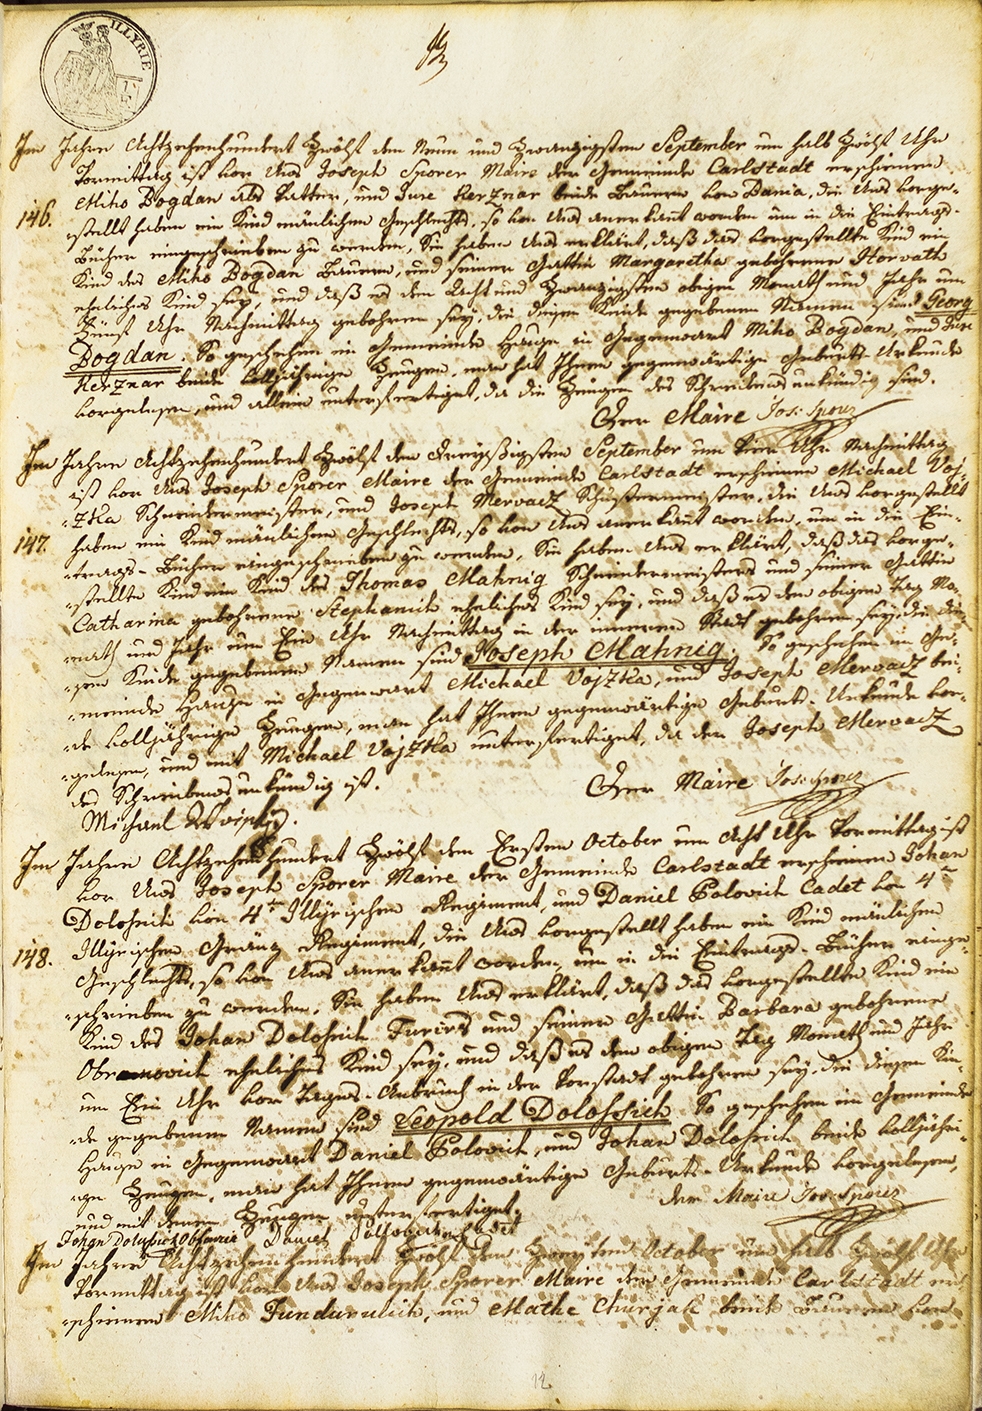 ILLYRIE
Im Jahre Achtzehenhundert Zwölf den Neun und Zwanzigsten September um halb Zwölf Uhr
Vormittag ist vor Uns Joseph Sporer Maire der Gemeinde Carlstadt erschienen
Miho Bogdan als Vatter, und Jure Herznar beide Bauern von Dania, die Uns vorge-
146.
stellt haben ein Kind mänlichen Geschlechts, so von Uns anerkant worden um in die Eintrags-
Bücher eingeschrieben zu werden, Sie haben Uns erklärt, daß das vorgestellte Kind ein
Kind des Miho Bogdan Bauern, und seiner Gattin Margaretha gebohrene Horvath
eheliches Kind sey, und daß es den Acht und Zwanzigsten obigen Monath und Jahr um
Fünf Uhr Nachmittag gebohren sey, die diesen Kinde gegebenen Namen sind Georg
Bogdan. So geschehen im Gemeinde Hause in Gegenwart Miho Bogdan, und Jure
Herznar beide volljährige Zeugen, man hat Ihnen gegenwärtige Geburts-Urkunde
vorgelesen, und allein untersfertiget, da die Zeugen des Schreibens unkündig sind.
Der Maire Jos: Sporer
Im Jahre Achtzehenhundert Zwölf den Dreyßigsten September um vier Uhr Nachmittag
ist vor Uns Joseph Sporer Maire der Gemeinde Carlstadt erschienen Michael Voj-
-zka Schneidermeister, und Joseph Mervacz Schustermeister, die Uns vorgestellt
147.
haben ein Kind mänlichen Geschlechts, so von Uns anerkant worden, um in die Ein-
-trags-Bücher eingeschrieben zu werden, Sie haben Uns erklärt, daß das vorge-
-stellte Kind ein Kind des Thomas Mahnig Schneidermeisters und seiner Gattin
Catharina gebohrene Stephanich eheliches Kind sey, und daß es den obigen Tag Mo-
-nath und Jahr um Ein Uhr Nachmittag in der inneren Stadt gebohren sey, die die-
-sem Kinde gegebenen Namen sind Joseph Mahnig. So geschehen im Ge-
-meinde Hause in Gegenwart Michael Vojzka, und Joseph Mervacz bei-
-de volljährige Zeugen, man hat Ihnen gegenwärtige Geburts-Urkunde vor-
-gelesen, und mit Michael Vojzka untersfertiget, da der Joseph Mervacz
des Schreibens unkündig ist.
Der Maire Jos: Sporer
Michael
Im Jahre Achtzehenhundert Zwölf den Ersten October um Acht Uhr Vormittag ist
vor Uns Joseph Sporer Maire der Gemeinde Carlstadt erschienen Johan
Dolossich von 4ten Illÿrischen Regiment, und Daniel Polovich Cadet von 4ten
148.
Illÿrischen Gränz Regiment, die Uns vorgestellt haben ein Kind mänlichen
Geschlechts, so von Uns anerkant worden, um in die Eintrags-Bücher einge-
-schrieben zu werden, Sie haben Uns erklärt, daß das vorgestellte Kind ein
Kind des Johan Dolossich Furirs und seiner Gattin Barbara gebohrene
Obranovich eheliches Kind sey, und daß es den obigen Tag Monath und Jahr
um Ein Uhr vor Tages-Anbruch in der Vorstadt gebohren sey, die diesen Kin-
-de gegebenen Namen sind Leopold Dolossich. So geschehen im Gemeinde
Hause in Gegenwart Daniel Polovich, und Johan Dolossich beide volljähri-
-ge Zeugen, man hat Ihnen gegenwärtige Geburts-Urkunde vorgelesen,
und mit denen Zeugen untersfertiget.
der Maire Jos: Sporer
Johan Daniel Cadet
Im Jahre Achtzehenhundert Zwölf den Zweyten October um halb Zwölf Uhr
Vormittag ist vor Uns Joseph Sporer Maire der Gemeinde Carlstadt er-
-schienen Miho Fundurulich, und Mathe Churjak beide Bauern von
12